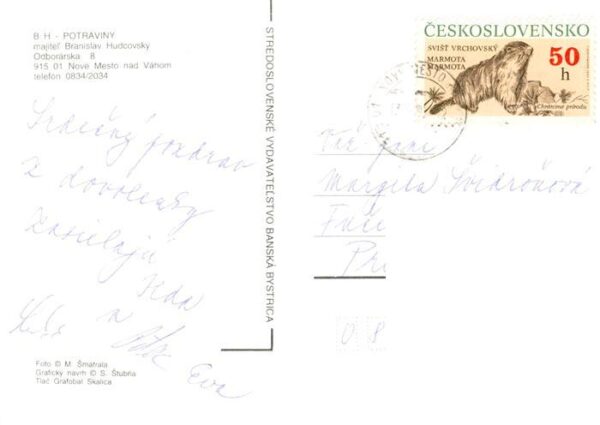 B H - POTRAVINY
majiteľ Branislav Hudcovský
Odborárska 8
915 01 Nové Mesto nad Váhom
telefón 0834/2034
Srdečný pozdrav
z dovolenky
zasielajú
Ida
a
Eva
Foto © M. Šmatrala
Grafický návrh © S. Štubňa
Tlač Grafobal Skalica
STREDOSLOVENSKÉ VYDAVATEĽSTVO BANSKÁ BYSTRICA
ČESKOSLOVENSKO
SVIŠŤ VRCHOVSKÝ
MARMOTA
MARMOTA
50
h
Chráníme přírodu
NOVÉ MESTO
Vž. pani
Margita
Pr
0 8